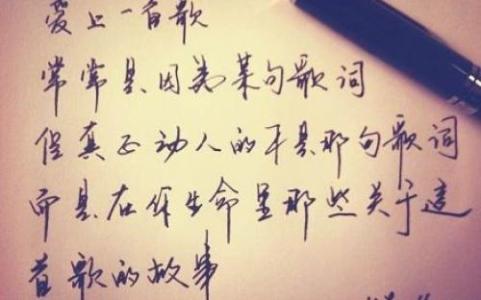 爱上一首歌
常常是因为某句歌词
但真正动人的不是那句歌词
而是在你生命里那些关于这
首歌的故事